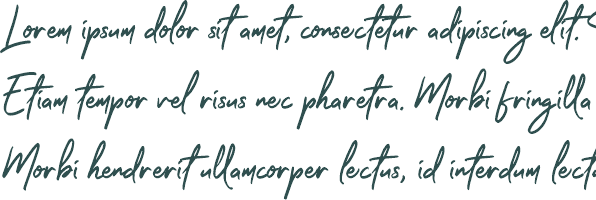 Lorem ipsum dolor sit amet, consectetur adipiscing elit.
Etiam tempor vel risus nec pharetra. Morbi fringilla
Morbi hendrerit ullamcorper lectus, id interdum